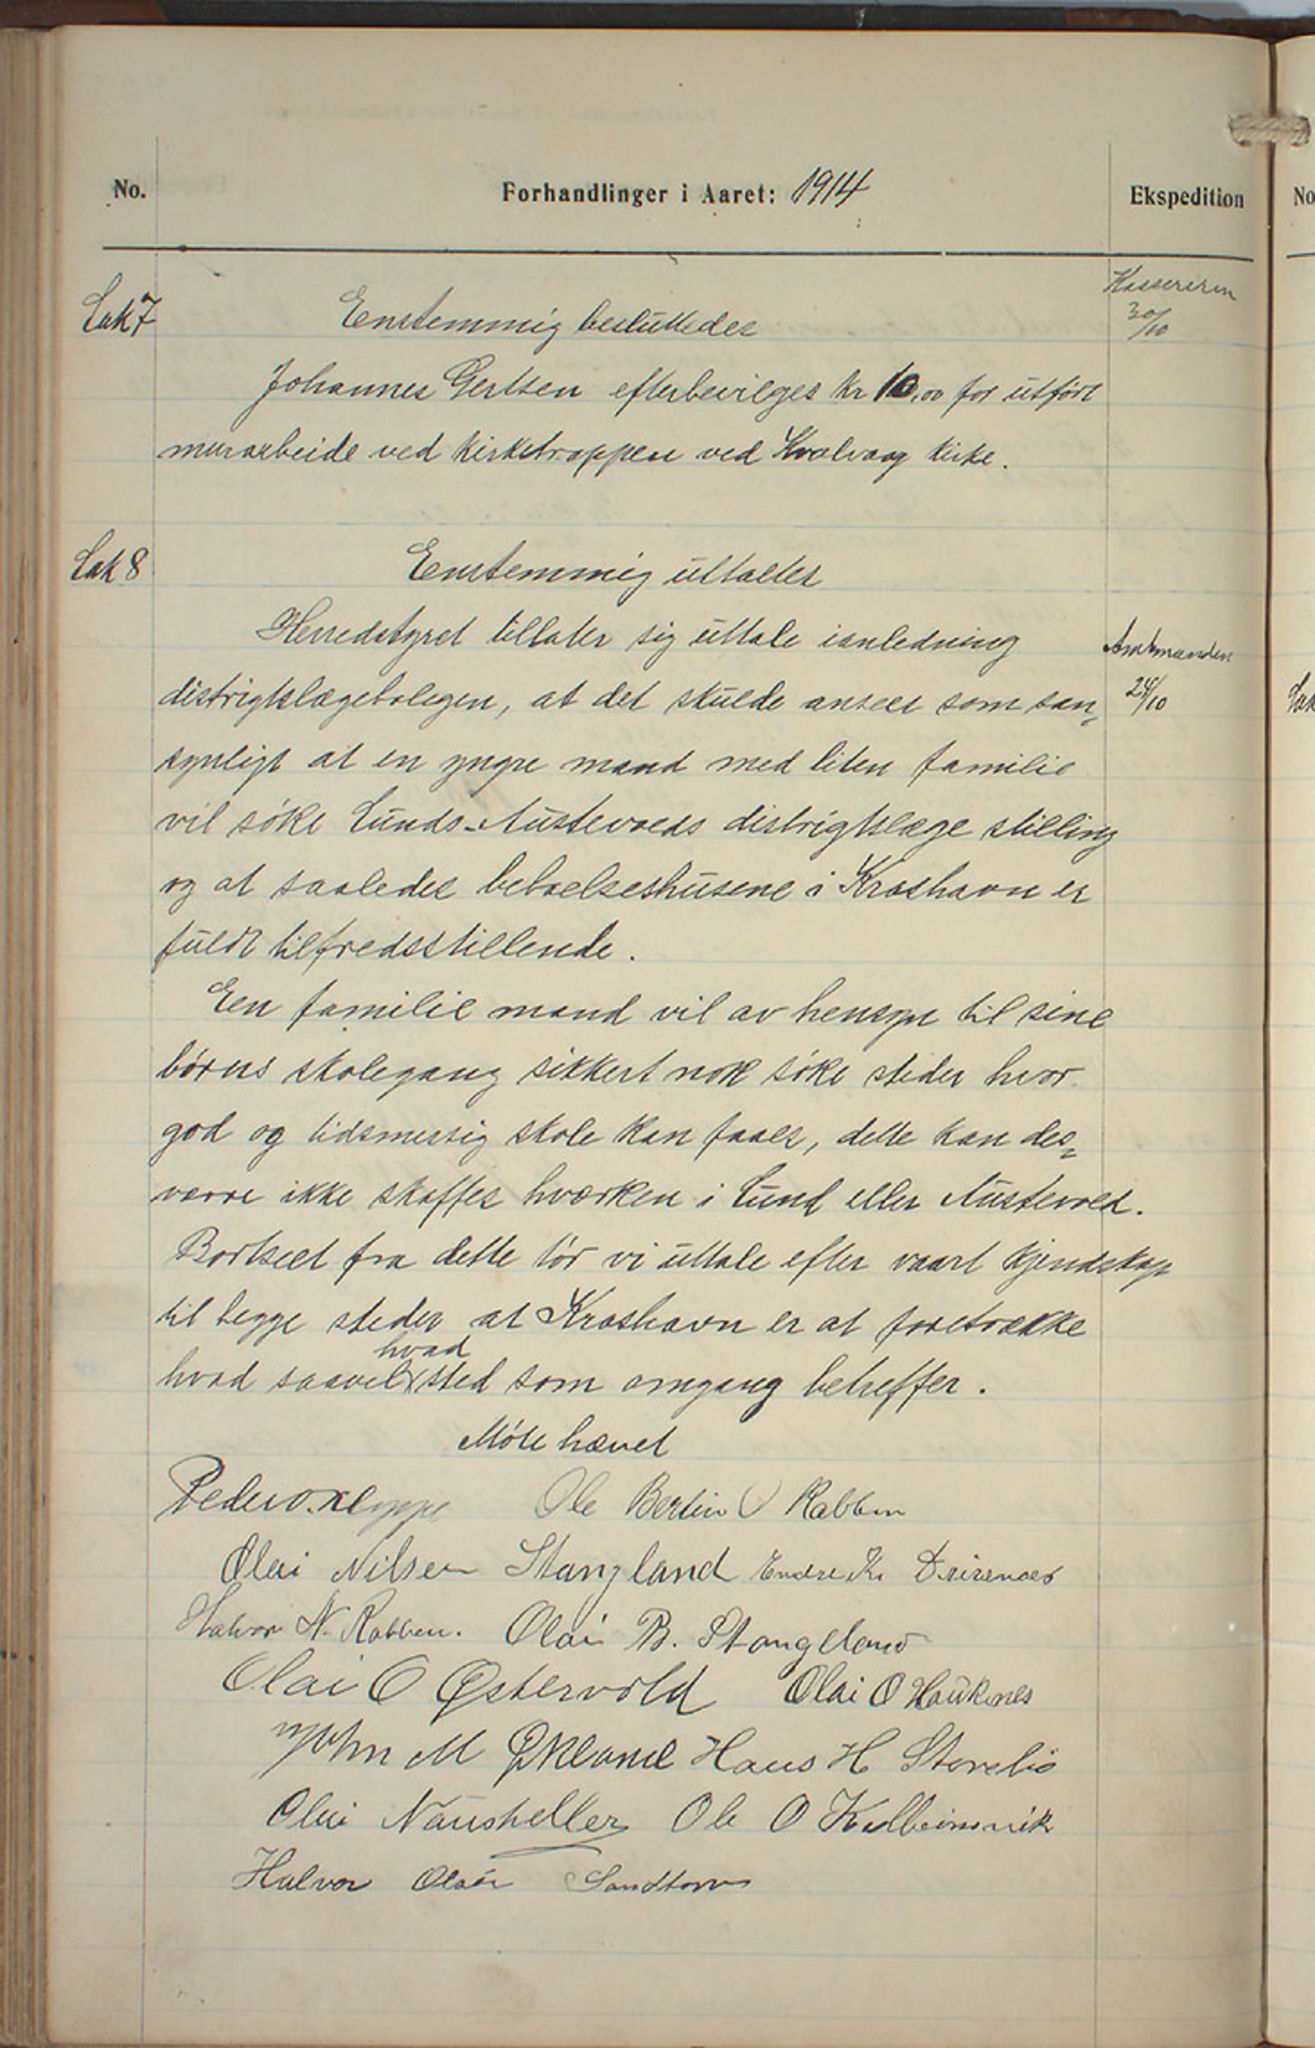 No.
Forhandlinger i Aaret: 1914
Ekspedition
No
Sak 7
Enstemmig besluttedes
Kassereren
30/10
Johannes Gertsen efterbevilges kr 10,00 for utført
murarbeide ved kirketrappen ved Kvalvaag kirke.
Sak 8
Enstemmig uttaltes
Herredstyret tillater sig uttale ianledning
Amtmanden
24/10
distrigtslægeboligen, at det skulde ansees som san=
Sak
synligt at en yngre mand med liten familie
vil søke Sunds-Austevolds distrigtslæge stilling
og at saaledes beboelseshusene i Kroshavn er
fuldt tilfredsstillende.
Een familie mand vil av hensyn til sine
børns skolegang sikkert nok søke steder hvor
god og tidsmessig skole kan faaes, dette kan des=
værre ikke skaffes hværken i Sund eller Austevold.
Bortseet fra dette tør vi uttale efter vaart kjendskap
til begge steder at Kroshavn er at foretrække
hvad
hvad saavel sted som omgang betreffer.
Møte hævet
Peder O. Kleppe Ole Berlin O Rabben
Olai Nilsen Stangeland Endre Kr Drivenes
Halvor N. Rabben. Olai B. Stangeland
Olai O Østervold Olai O Haukenes
John M Økland Hans H Storebø
Olai Naustheller Ole O Kolbeinsvik
Halvor Olsen Sandtorv